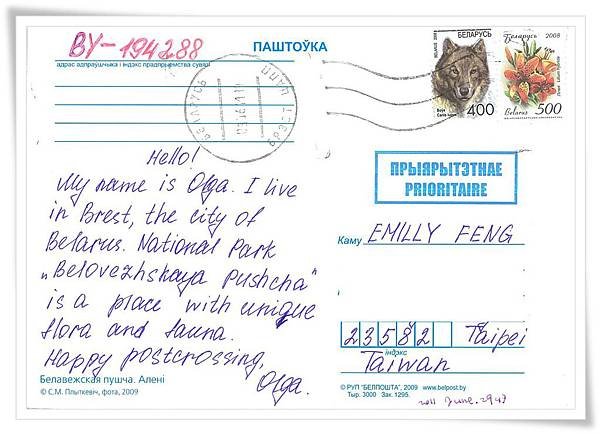 BY-194288
ПАШТОЎКА
адрас адпраўшчыка і індэкс прадпрыемства сувязі
БЕЛАРУСЬ
400
Воўк
Canis lupus
Беларусь 2008
Belarus 500
БЕЛАРУСЬ
БРЭСТ
Hello!
My name is Olga. I live
in Brest, the city of
Belarus. National Park
„Belovezhskaya Pushcha"
is a place with unique
flora and fauna.
Happy postcrossing,
Olga.
Белавежская пушча. Алені
© С.М. Плыткевіч, фота, 2009
ПРЫЯРЫТЭТНАЕ
PRIORITAIRE
Каму EMILLY FENG
23582 Taipei
індэкс
Taiwan
© РУП "БЕЛПОШТА", 2009 www.belpost.by
Тыр. 3000 Зак. 1295.
2011 June.